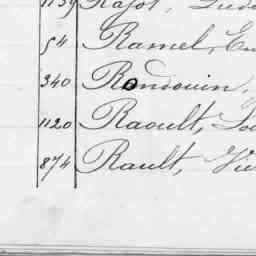 1139 Rajot,
54 Ramel, Em
340 Rondouin,
1120 Raoult, Lou
874 Rault, Vic